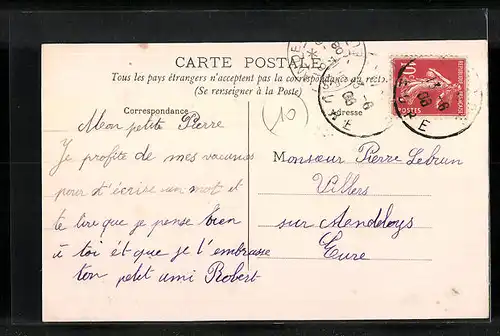 CARTE POSTALE
Tous les pays étrangers n'acceptent pas la correspondance au recto
(Se renseigner à la Poste)
Correspondance
Adresse
10
POSTES
(10)
Mon petite Pierre
Je profite de mes vacances
pour t'écrire un mot et
te dire que je pense bien
à toi ét que je t'embrasse
ton petit ami Robert
Monsieur Pierre Lebrun
Villers
sur
Eure
EURE